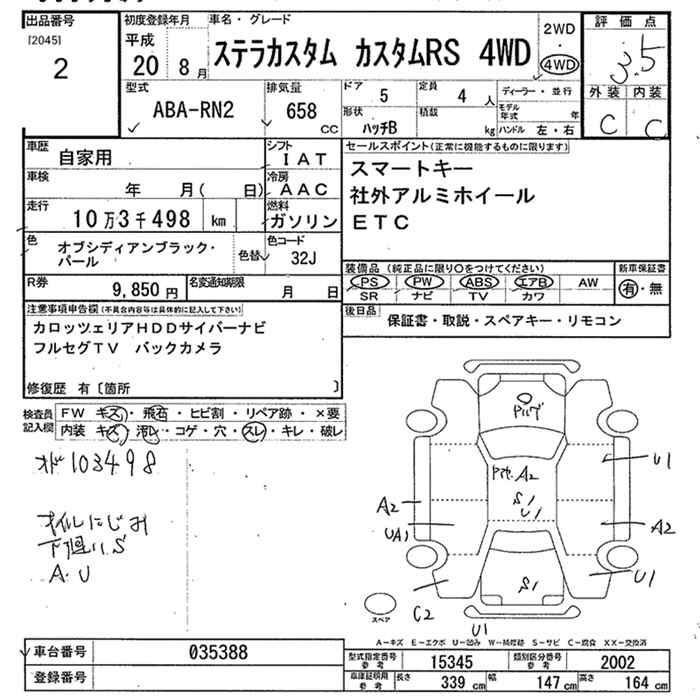 出品番号 初度登録年月 車名・グレード 2WD 評価点
[2045] 平成 ・
2 20 8月 ステラカスタム カスタムRS 4WD 4WD 3.5
型式 排気量 ドア 5 定員 4人 ディーラー・並行 外装 内装
ABA-RN2 658 CC 形状 ハッチB 積載 kg モデル年式 年 C C
ハンドル 左・右
車歴 自家用 シフト IAT セールスポイント(正常に機能するものに限ります)
車検 年 月( 日) 冷房 AAC スマートキー
走行 10万3千498 km 燃料 ガソリン 社外アルミホイール
ETC
色 オブシディアンブラック・パール 色替 色コード 32J
装備品 (純正品に限り○をつけてください) 新車保証書
R券 9,850円 名変通知期限 月 日 PS PW ABS エアB AW 有・無
SR ナビ TV カワ
注意事項申告欄(不具合内容等は具体的に記入して下さい) 後日品 保証書・取説・スペアキー・リモコン
カロッツェリアHDDサイバーナビ
フルセグTV バックカメラ
修復歴 有〔箇所 〕
検査員記入欄 FW キズ・飛石・ヒビ割・リペア跡・×要
内装 キズ・汚レ・コゲ・穴・スレ・キレ・破レ
オド103498
オイルにじみ
下廻りS
A.U
A2
S1
U1
U1
A2
UA1
A2
S1
U1
C2
スペア
U1
A-キズ E-エクボ U-凹み W-補修跡 S-サビ C-腐食 XX-交換済
車台番号 035388 型式指定番号 参考 15345 類別区分番号 参考 2002
登録番号 車庫証明用 参考 長さ 339cm 幅 147cm 高さ 164cm